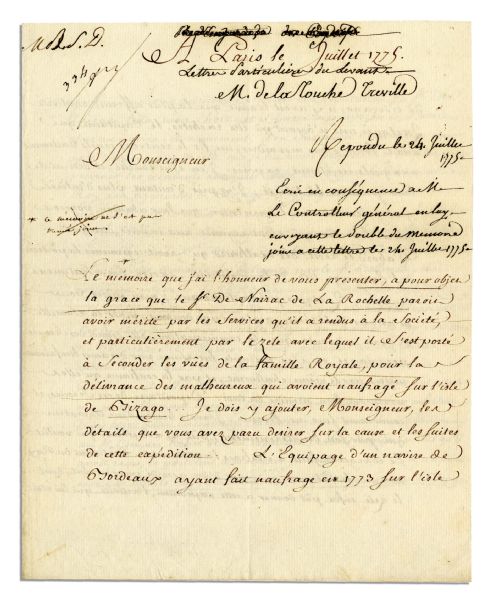 M. R. S. D.
A Paris le Juillet 1775.
Lettre particuliere du Levant
M. de la Touche Treville
Repondu le 24 Juillet
1775
Monseigneur
Ecrit en conséquence a M
Le Controlleur général en luy
envoyant le double du Memoire
joint a cette lettre le 24 Juillet 1775
* ce memoire ne s'est pas
Le mémoire que j'ai l'honneur de vous presenter, a pour objet
la grace que le Sr. De Nairac de La Rochelle paroit
avoir mérité par les Services qu'il a rendus à la Société,
et particulièrement par le zele avec lequel il s'est porté
à Seconder les vûes de la famille Royale, pour la
délivrance des malheureux qui avoient naufragé sur l'isle
de Bizago... Je dois y ajouter, Monseigneur, les
détails que vous avez paru desirer sur la cause et les suites
de cette expédition. L'Equipage d'un navire de
Bordeaux ayant fait naufrage en 1773 sur l'isle